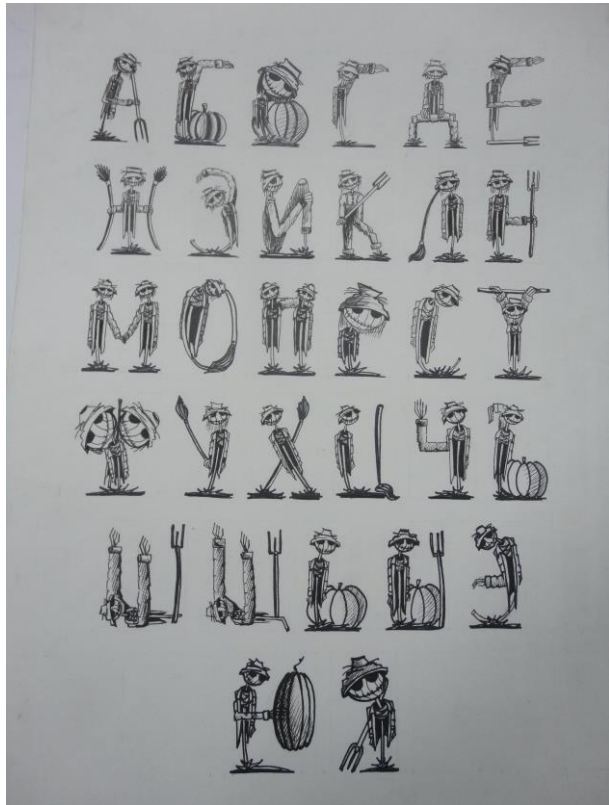 А Б В Г Д Е
Ж З И К Л Н
М О П Р С Т
Ф У Х Ц Ч Ъ
Ш Щ Ь Ы Э
Ю Я